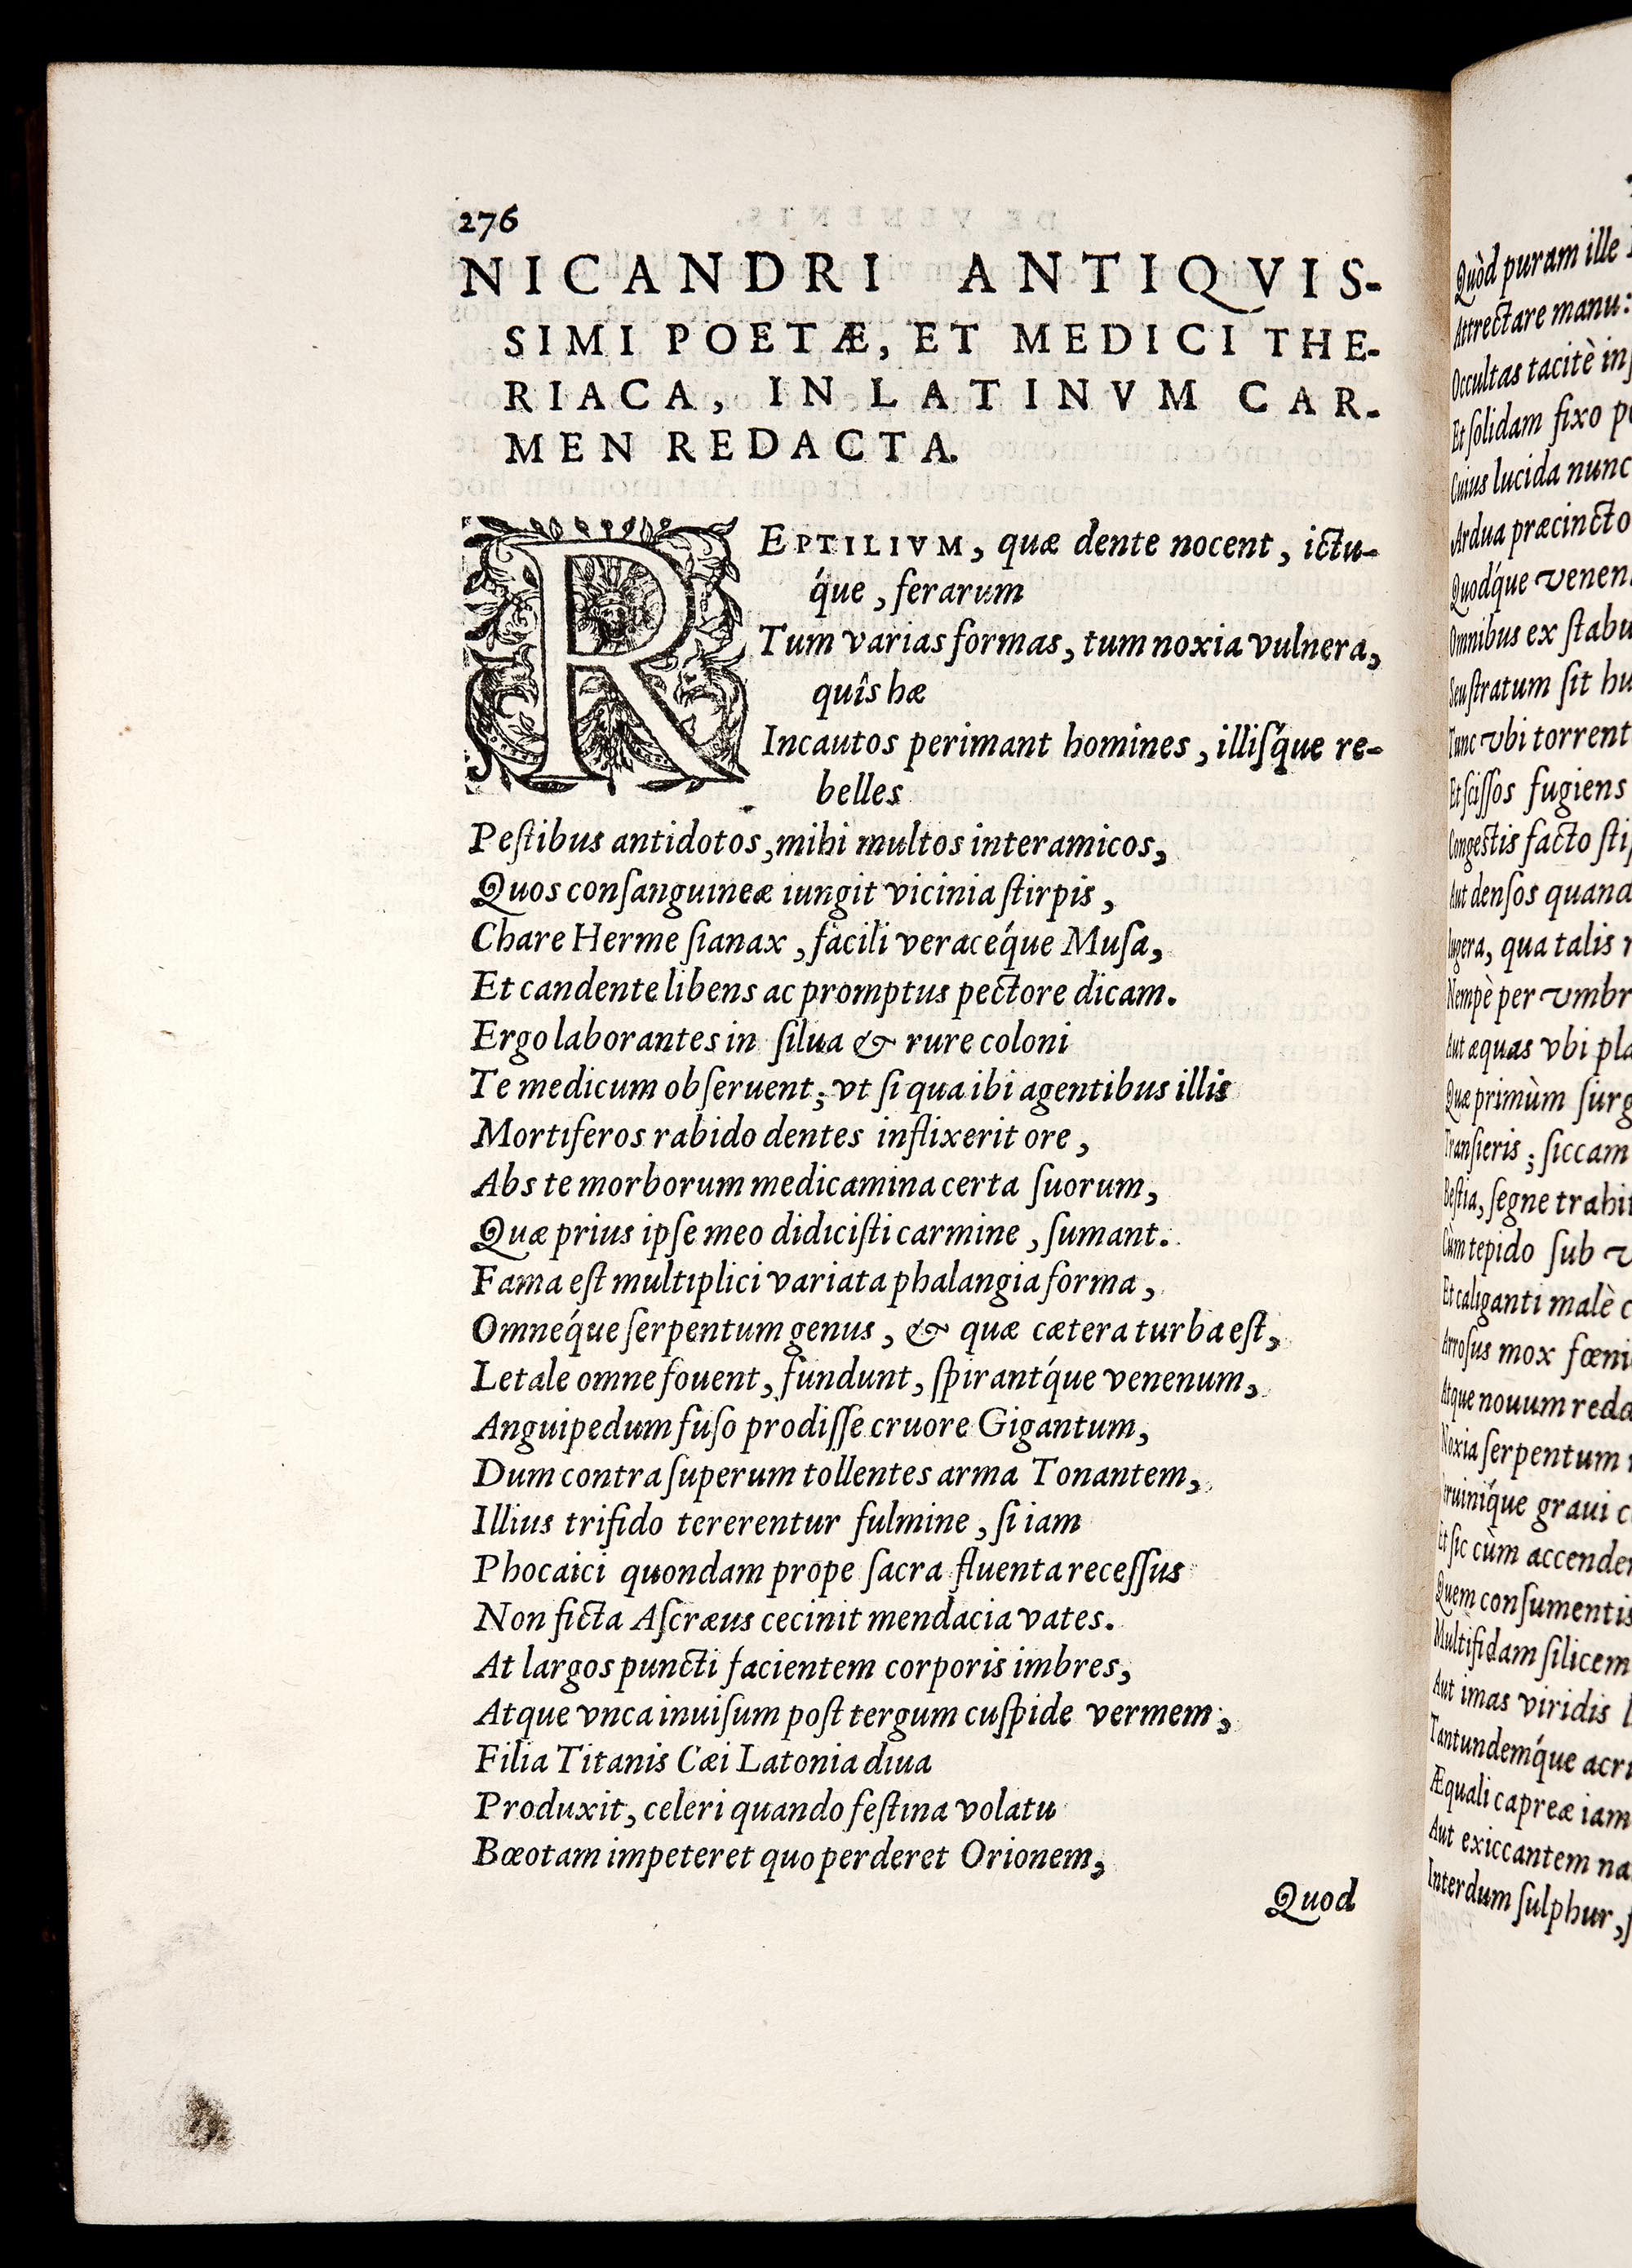 276
NICANDRI ANTIQVIS-
SIMI POETÆ, ET MEDICI THE-
RIACA, IN LATINVM CAR-
MEN REDACTA.
REPTILIVM, quæ dente nocent, ictu-
q́ue, ferarum
Tum varias formas, tum noxia vulnera,
quîs hæ
Incautos perimant homines, illiſq́ue re-
belles
Peſtibus antidotos, mihi multos inter amicos,
Quos conſanguineæ iungit vicinia ſtirpis,
Chare Hermeſianax, facili veraceq́ue Muſa,
Et candente libens ac promptus pectore dicam.
Ergo laborantes in ſilua & rure coloni
Te medicum obſeruent; vt ſi qua ibi agentibus illis
Mortiferos rabido dentes inflixerit ore,
Abs te morborum medicamina certa ſuorum,
Quæ prius ipſe meo didiciſti carmine, ſumant.
Fama eſt multiplici variata phalangia forma,
Omneq́ue ſerpentum genus, & quæ cætera turba eſt,
Letale omne fouent, fundunt, ſpirantq́ue venenum,
Anguipedum fuſo prodiſſe cruore Gigantum,
Dum contra ſuperum tollentes arma Tonantem,
Illius trifido tererentur fulmine, ſi iam
Phocaici quondam prope ſacra fluenta receſſus
Non ficta Aſcræus cecinit mendacia vates.
At largos puncti facientem corporis imbres,
Atque vnca inuiſum poſt tergum cuſpide vermem,
Filia Titanis Cæi Latonia diua
Produxit, celeri quando feſtina volatu
Bœotam impeteret quo perderet Orionem,
Quod
Quòd puram ille
Attrectare manu:
Occultas tacitè
Et ſolidam fixo
Cuius lucida nunc
Ardua præcincto
Quodq́ue
Omnibus ex
Seu ſtratum ſit
Tunc vbi
Et ſciſſos fugiens
Congeſtis facto
Aut denſos
Iugera, qua talis
Nempè per
Aut æquas vbi
Quæ primùm
Tranſieris; ſiccam
Beſtia, ſegne
Cùm tepido ſub
Et caliganti malè
Arroſus mox
Atque nouum
Noxia ſerpentum
graui
Et ſic cùm
Quem
Multifidam ſilicem
Aut imas viridis
Tantundemq́ue
Æquali capreæ iam
Aut exiccantem
Interdum ſulphur,